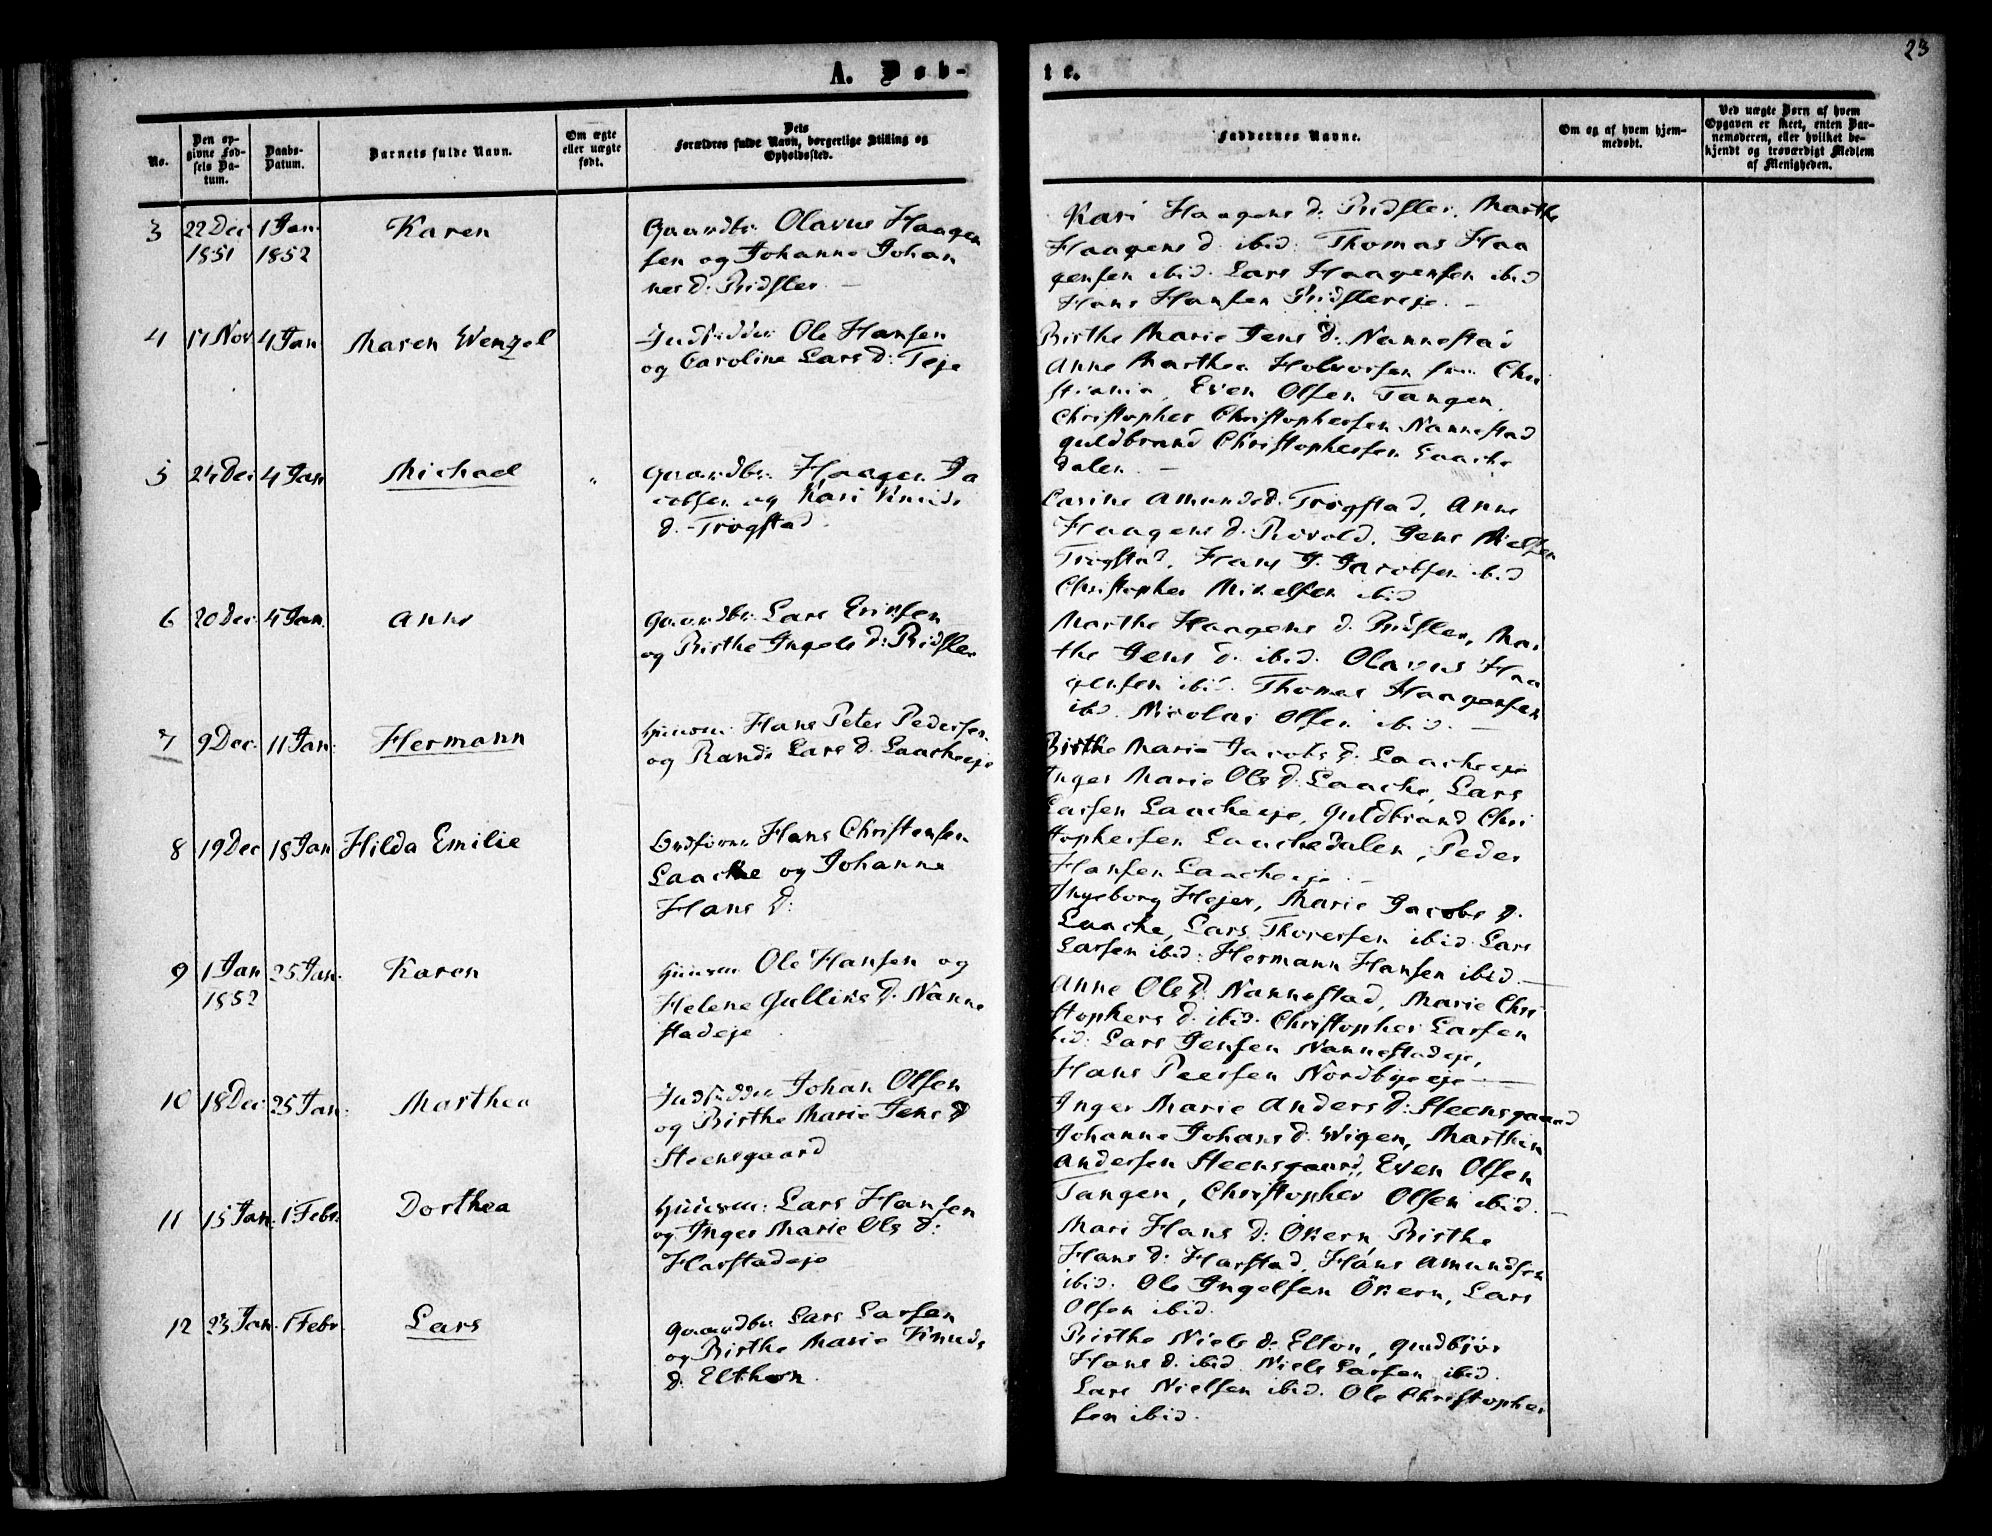 23
A. Døb-
te.
No.
Den op-
givne Fød-
sels Da-
tum.
Daabs-
Datum.
Barnets fulde Navn.
Om ægte
eller uægte
født.
Dets
Forældres fulde Navn, borgerlige Stilling og
Opholdssted.
Faddernes Navne.
Om og af hvem hjem-
medøbt.
Ved uægte Børn af hvem
Opgaven er skeet, enten Bar-
nemoderen, eller hvilket be-
kjendt og troværdigt Medlem
af Menigheden.
3 22 Dec 1 Jan Karen
1851 1852
Gaardbr: Olavus Haagen
sen og Johanne Johan
nes d: Ridsler
Kari Haagens d: Ridsler, Marthe
Haagens d. ibid: Thomas Haa
gensen ibid. Lars Haagensen ibid
Hans Hansen Ridslereje. —
4 17 Nov 4 Jan Maren Wenzel
Ole Hansen
og Caroline Lars d: Teje
Birthe Marie Jens d: Nannestad
Anne Marthea Halvorsen fra Chri
stiania, Even Olsen Tangen,
Christopher Christophersen Nannestad
Guldbrand Christophersen Laache
dalen. —
5 24 Dec 4 Jan Michael "
Gaardbr: Haagen Ja
cobsen og Kari Knuds
d. Trøgstad.
Carine Amunds d. Trøgstad, Anne
Haagens d: Røvold. Jens Nielsen
Trøgstad, Hans J. Jacobsen ibid
Christopher Mikelsen ibid
6 20 Dec: 4 Jan. Anne
Gaardbr: Lars Ericsen
og Birthe Ingels d: Ridsler
Marthe Haagens d. Ridsler, Mar
the Jens d. ibid. Olavus Haa
gensen ibid. Thomas Haagensen
ibid. Nicolai Olsen ibid. —
7 9 Dec. 11 Jan: Hermann
Huusm: Hans Peter Pedersen
og Randi Lars d. Laacheeje
Birthe Marie Jacobs d. Laacheeje
Inger Marie Ols d. Laache, Lars
Larsen Laacheeje, Guldbrand Chri
stophersen Laachedalen, Peder
Hansen Laacheeje. —
8 19 Dec 18 Jan Hilda Emilie
Hans Christensen
Laache og Johanne
Hans d:
Ingeborg Hejer, Marie Jacobs d.
Laache, Lars Thoresen ibid Lars
Larsen ibid: Hermann Hansen ibid. —
9 1 Jan 25 Jan. Karen
1852
Huusm: Ole Hansen og
Helene Gulliks d. Nanne
stadeje
Anne Ols d: Nannestad, Marie Chri
stophers d. ibid. Christopher Larsen
ibid: Lars Jensen Nannestadeje,
Hans Peersen Nordbyeje —
10 18 Dec: 25 Jan: Marthea
Johan Olsen
og Birthe Marie Jens d
Steensgaard
Inger Marie Anders d: Steensgaard
Johanne Johans d. Wigen, Marthin
Andersen Steensgaard, Even Olsen
Tangen, Christopher Olsen ibid. —
11 15 Jan. 1 Febr. Dorthea
Huusm: Lars Hansen
og Inger Marie Ols d:
Harstadeje
Mari Hans d: Økern Birthe
Hans d: Harstad, Hans Amundsen
ibid. Ole Ingelsen Økern, Lars
Olsen ibid.
12 23 Jan. 1 Febr. Lars
Gaardbr: Lars Larsen
og Birthe Marie Knuds
d. Elthon.
Birthe Niels d: Elton, Gundbjør
Hans d. ibid. Niels Larsen ibid.
Lars Nielsen ibid. Ole Christopher
sen ibid.